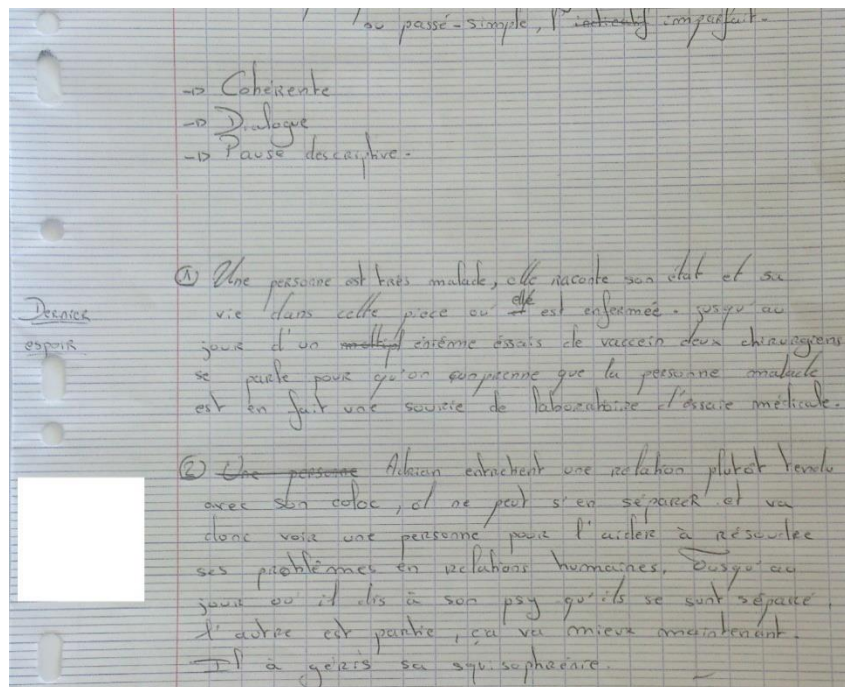 au passé-simple, l'indicatif imparfait.
-> Cohérente
-> Dialogue
-> Pause descriptive.
Dernier
espoir
① Une personne est très malade, elle raconte son état et sa
vie dans cette piece ou elle est enfermeé. jusqu'au
jour d'un énième éssais de vaccein deux chirurgiens
se parle pour qu'on comprenne que la personne malade
est en fait une sourie de laboratoire d'éssaie médicale.
② Une personne Adrian entrechent une relation plutôt tendu
avec son coloc, il ne peut s'en séparer et va
donc voir une personne pour l'aider à résoudre
ses problèmes en relations humaines, Jusqu'au
jour ou il dis à son psy qu'ils se sont séparé,
l'autre est partie, ça va mieux maintenant.
Il à géris sa squisophrénie.